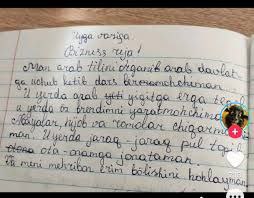 Uyga vazifa
Bizness reja!
Man arab tilini organib arab davlat
ga uchub ketib dars beromohchiman.
U yerda arab yigitga erga te
u yerda oz brendimni yaratmohchiman
Abayalar, hijob va romolar chiqarmoh
man. U yerda jaraq-jaraq pul topil
ota-onamga jonataman.
Va meni mehribon erim bolishini hohlayman